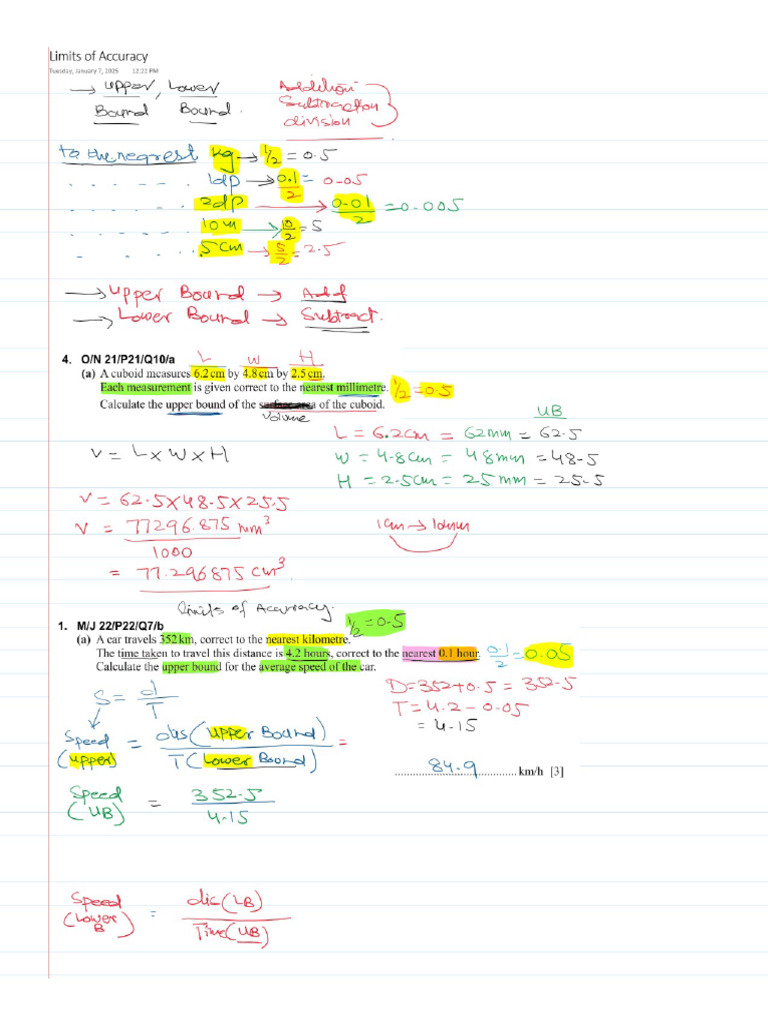 Limits of Accuracy
Tuesday, January 7, 2025 12:22 PM
→ Upper, Lower
Bound Bound.
Addition
Subtraction
division
to the nearest kg → 1/2 = 0.5
. . . . . . 1dp → 0.1/2 = 0.05
. . . . . . 2dp → 0.01/2 = 0.005
. . . . . . 10m → 10/2 = 5
. . . . . 5cm → 5/2 = 2.5
→ Upper Bound → Add
→ Lower Bound → Subtract.
4. O/N 21/P21/Q10/a
L W H
(a) A cuboid measures 6.2 cm by 4.8 cm by 2.5 cm.
Each measurement is given correct to the nearest millimetre. 1/2 = 0.5
Calculate the upper bound of the surface area of the cuboid.
volume
UB
L = 6.2cm = 62mm = 62.5
W = 4.8cm = 48mm = 48.5
H = 2.5cm = 25mm = 25.5
V = L x W x H
V = 62.5 x 48.5 x 25.5
V = 77296.875 mm³
1000
= 77.296875 cm³
1cm → 10mm
Limits of Accuracy.
1. M/J 22/P22/Q7/b
1/2 = 0.5
(a) A car travels 352 km, correct to the nearest kilometre.
The time taken to travel this distance is 4.2 hours, correct to the nearest 0.1 hour. 0.1/2 = 0.05
Calculate the upper bound for the average speed of the car.
D = 352 + 0.5 = 352.5
T = 4.2 - 0.05
= 4.15
S = d/T
Speed (upper) = dis (Upper Bound) / T (Lower Bound) =
84.9 km/h [3]
Speed (UB) = 352.5 / 4.15
Speed (Lower B) = dis (LB) / Time (UB)